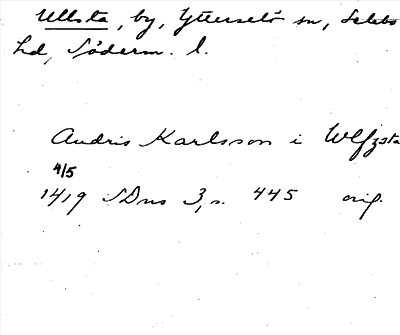 Ullsta, by, Ytterselö sn, Selebo
hd, Söderm. l.
Andris Karlsson i Wlfzsta
4/5
1419 SDns 3, s. 445 orig.